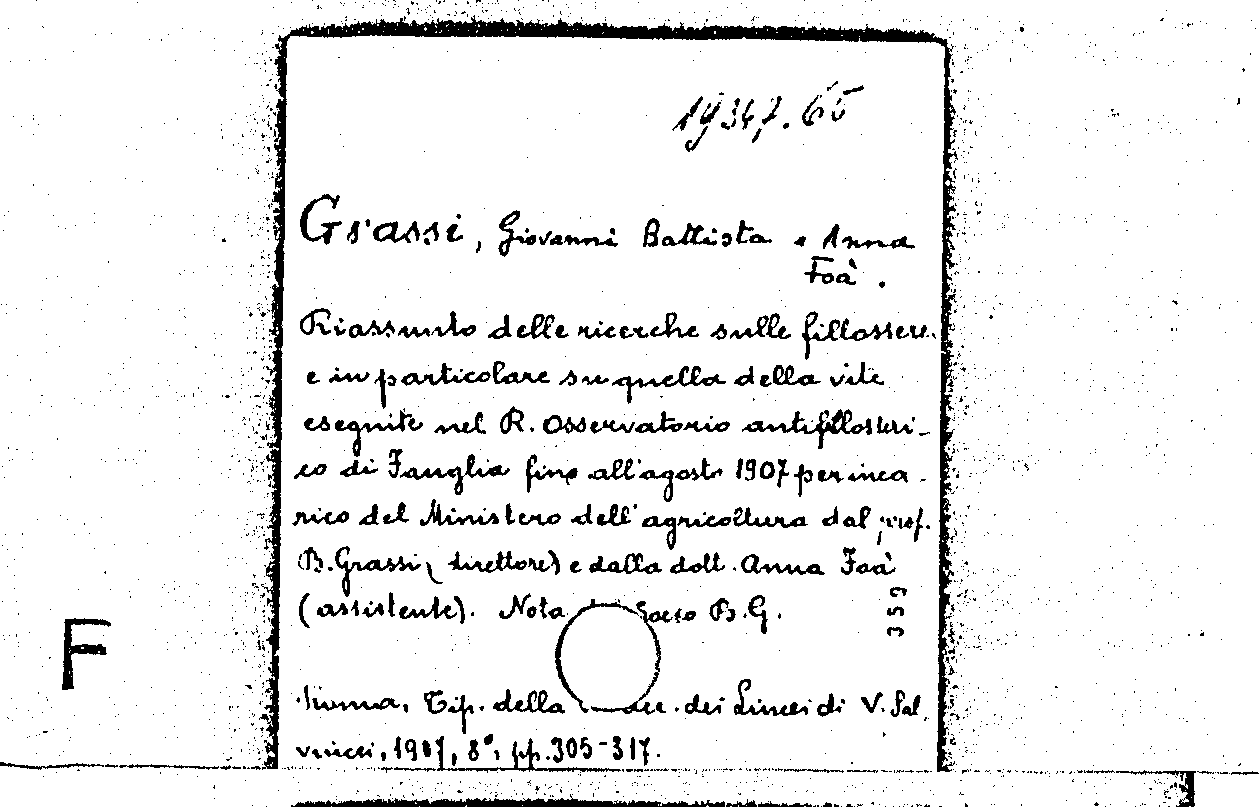 19347.65
Grassi, Giovanni Battista e Anna
Foà.
Riassunto delle ricerche sulle fillossere
e in particolare su quella della vite
eseguite nel R. Osservatorio antifillosseri-
co di Fauglia fino all'agosto 1907 per inca-
rico del Ministero dell'agricoltura dal prof.
B. Grassi (direttore) e dalla dott. Anna Foà
(assistente). Nota del Socio B. G.
359
F
Roma, Tip. della Acc. dei Lincei di V. Sal
viucci, 1907, 8°, pp. 305-317.